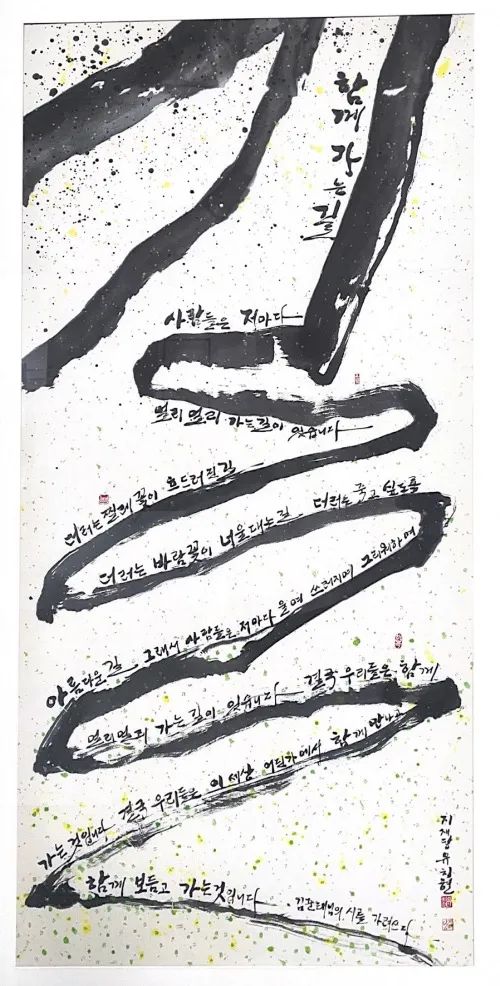 함께 가는 길
사람들은 저마다
멀리멀리 가는길이 있습니다
더러는 찔레꽃이 흐드러진길
더러는 바람꽃이 너울대는길 더러는 죽고 싶도록
아름다운길 그래서 사람들은 저마다 울며 쓰러지며 그리워하며
멀리멀리 가는길이 있습니다 결국 우리들은 함께
가는것입니다 결국 우리들은 이세상 어딘가에서 함께 만나
함께 보듬고 가는것입니다
김준태님의 시를 가려쓰다
지재당 유치현